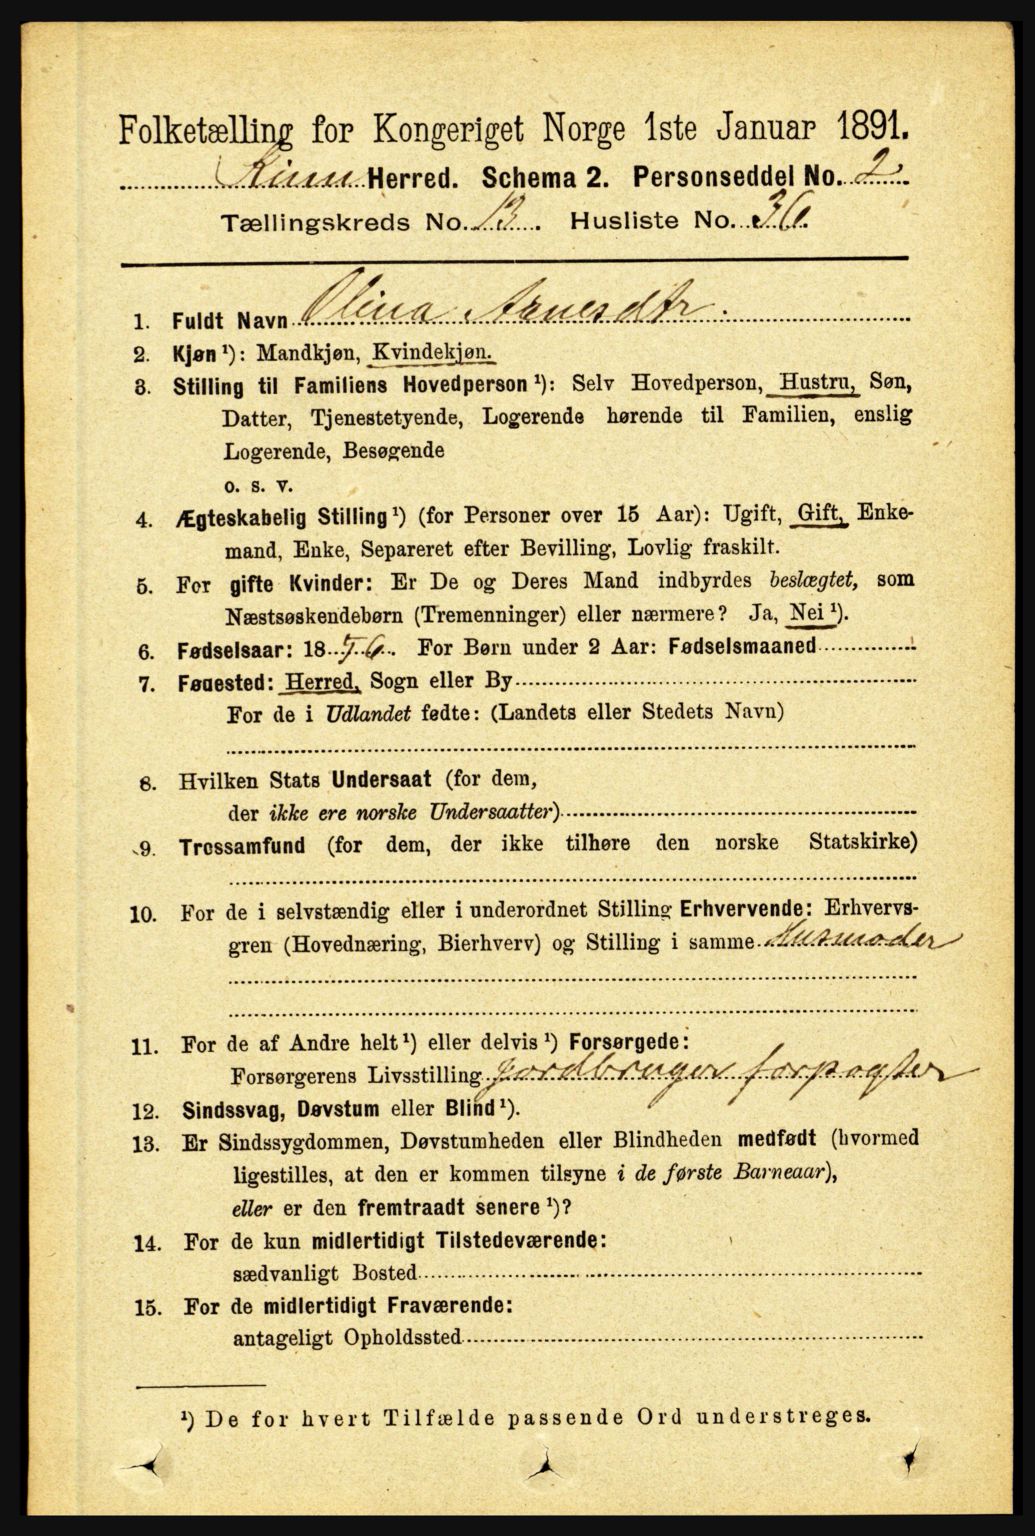 Folketælling for Kongeriget Norge 1ste Januar 1891.
Kinn Herred. Schema 2. Personseddel No. 2
Tællingskreds No. 13. Husliste No. 36.
1. Fuldt Navn Olina Arnesdtr.
2. Kjøn ¹): Mandkjøn, Kvindekjøn.
3. Stilling til Familiens Hovedperson ¹): Selv Hovedperson, Hustru, Søn,
Datter, Tjenestetyende, Logerende hørende til Familien, enslig
Logerende, Besøgende
o. s. v.
4. Ægteskabelig Stilling ¹) (for Personer over 15 Aar): Ugift, Gift, Enke-
mand, Enke, Separeret efter Bevilling, Lovlig fraskilt.
5. For gifte Kvinder: Er De og Deres Mand indbyrdes beslægtet, som
Næstsøskendebørn (Tremenninger) eller nærmere? Ja, Nei ¹).
6. Fødselsaar: 1856. For Børn under 2 Aar: Fødselsmaaned
7. Fødested: Herred, Sogn eller By
For de i Udlandet fødte: (Landets eller Stedets Navn)
8. Hvilken Stats Undersaat (for dem,
der ikke ere norske Undersaatter)
9. Trossamfund (for dem, der ikke tilhøre den norske Statskirke)
10. For de i selvstændig eller i underordnet Stilling Erhvervende: Erhvervs-
gren (Hovednæring, Bierhverv) og Stilling i samme Husmoder
11. For de af Andre helt ¹) eller delvis ¹) Forsørgede:
Forsørgerens Livsstilling Jordbruger forpagter
12. Sindssvag, Døvstum eller Blind ¹).
13. Er Sindssygdommen, Døvstumheden eller Blindheden medfødt (hvormed
ligestilles, at den er kommen tilsyne i de første Barneaar),
eller er den fremtraadt senere ¹)?
14. For de kun midlertidigt Tilstedeværende:
sædvanligt Bosted
15. For de midlertidigt Fraværende:
antageligt Opholdssted
¹) De for hvert Tilfælde passende Ord understreges.